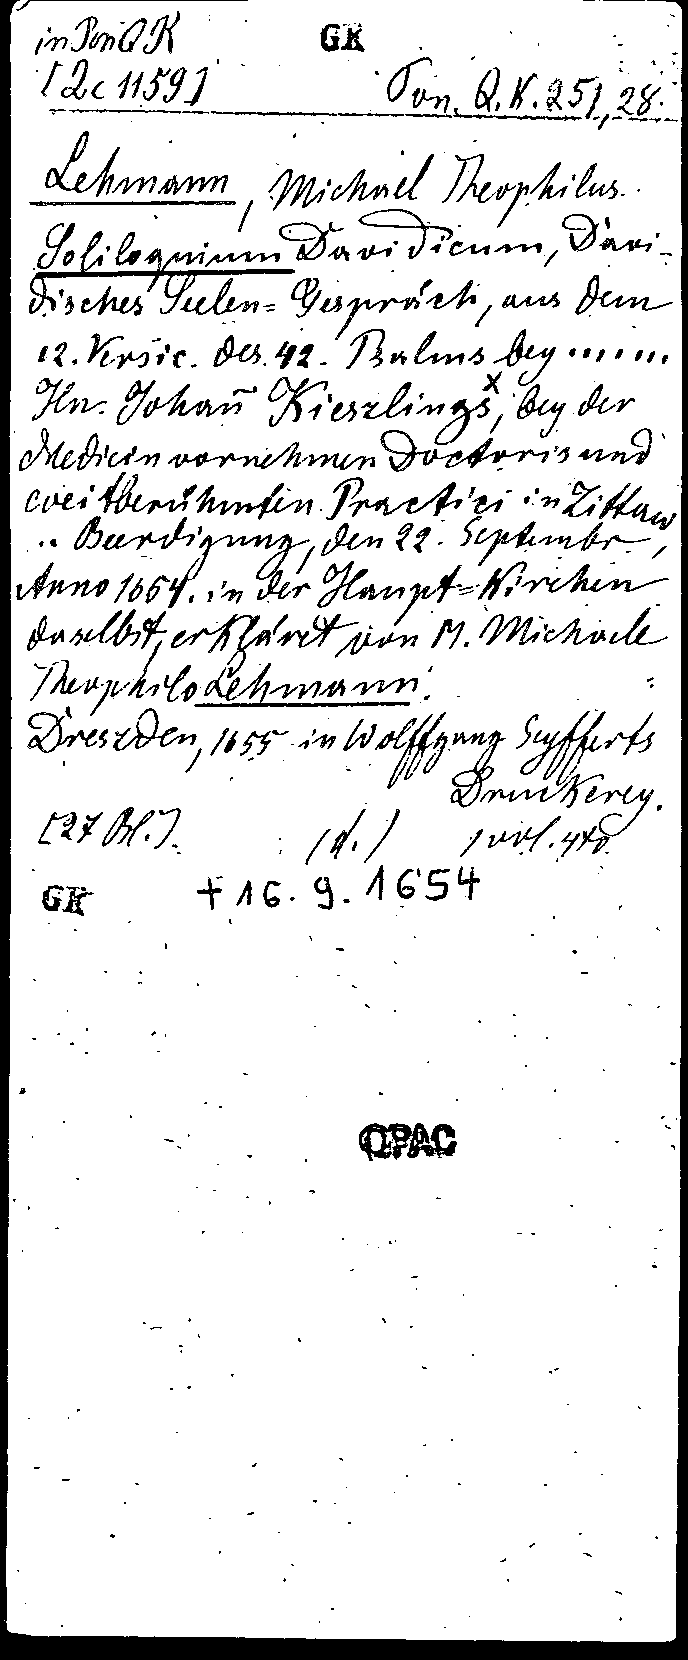 in Pon Q K
GK
[2c 1159]
Pon. Q. K. 251, 28.
Lehmann, Michael Theophilus.
Soliloquium Davidicum, Davi-
disches Seelen= Gespräch, aus dem
12. Versic. des 42. Psalms bey ......
Hn. Johañ Kieszlings, bey der
x
Medicin vornehmen Doctoris und
weitberühmten Practici in Zittaw
.. Beerdigung, den 22. Septembr.,
Anno 1654. in der Haupt=Kirchen
daselbst, erkläret von M. Michaele
Theophilo Lehmann.
Dreszden, 1655 in Wolffgang Seyfferts
Druckerey.
[27 Bl.]. (d.) 1 vol. 4to.
GK
+ 16. 9. 1654
OPAC